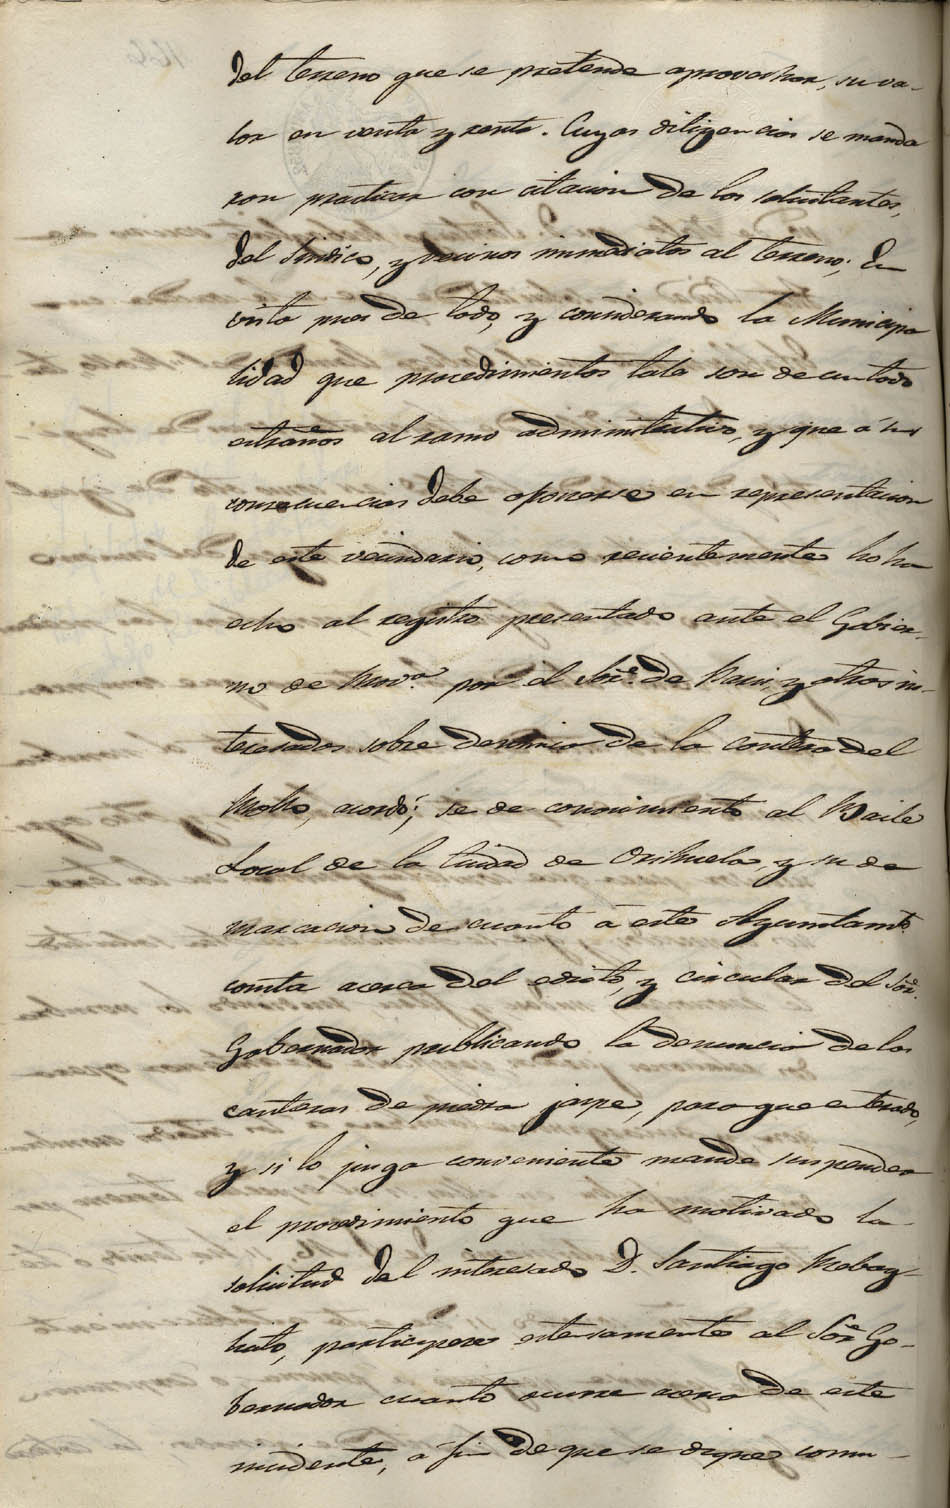 del terreno que se pretende aprovechar, su va-
lor en venta y renta. Cuyas diligencias se manda
ron practicar con citacion de los solicitantes,
del Sindico, y vecinos inmediatos al terreno; En
vista pues de todo, y considerando la Municipa
lidad que procedimientos tales son de un todo
estraños al ramo administrativo, y que á sus
consecuencias debe oponerse en representacion
de este vecindario, como recientemente lo ha
echo al registro presentado ante el Gobier-
no de Prov.ª por el Sor. de y otros in-
teresados sobre denuncia de la cantera del
acordó; se de conocimiento al Baile
Local de la Ciudad de Orihuela, y su de
marcacion de cuanto á este Ayuntamto.
consta acerca del edicto, y circular del Sor.
Gobernador publicando la denuncia de las
canteras de piedra jaspe, para que enterado,
y si lo juzga conveniente mande suspender
el procedimiento que ha motivado la
solicitud del interesado D. Santiago
participese estensamente al Sor. Go-
bernador cuanto ocurre acerca de este
incidente, a fin de que se digne comu-